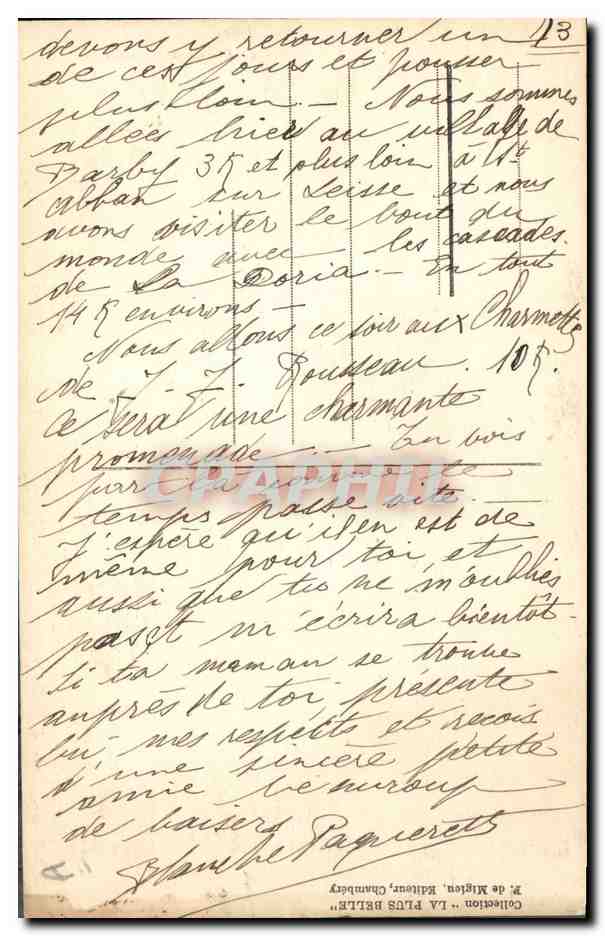 13
devons y retourner un
de ces jours et pousser
plus loin. — Nous sommes
allées hier au village de
Barby 3K et plus loin à St
Cabban sur Leisse et nous
avons visiter le bout du
monde avec les cascades
de La Doria. — En tout
14 K environs —
Nous allons ce soir aux Charmettes
de J. J. Rousseau. 10K.
Ce sera une charmante
promenade. — Tu vois
par là comme le
temps passe vite —
J'espère qu'il en est de
même pour toi et
aussi que tu ne m'oublies
pas et m'écrira bientôt —
Si ta maman se trouve
auprès de toi, présente
lui mes respects et reçois
d'une sincère petite
amie beaucoup
de baisers
Blanche Paquerette
CPAPHIL
Collection " LA PLUS BELLE"
F. de Migieu, Editeur, Chambéry